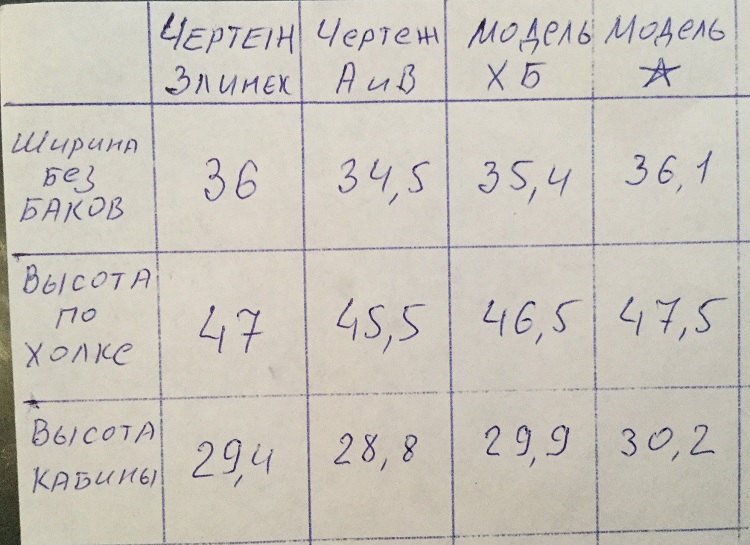 ЧЕРТЕЖ Чертеж МОДЕЛЬ МОДЕЛЬ
ЗЛИНЕК А и В ХБ ☆
Ширина
без
БАКОВ
36 34,5 35,4 36,1
Высота
по
холке
47 45,5 46,5 47,5
Высота
КАБИНЫ
29,4 28,8 29,9 30,2